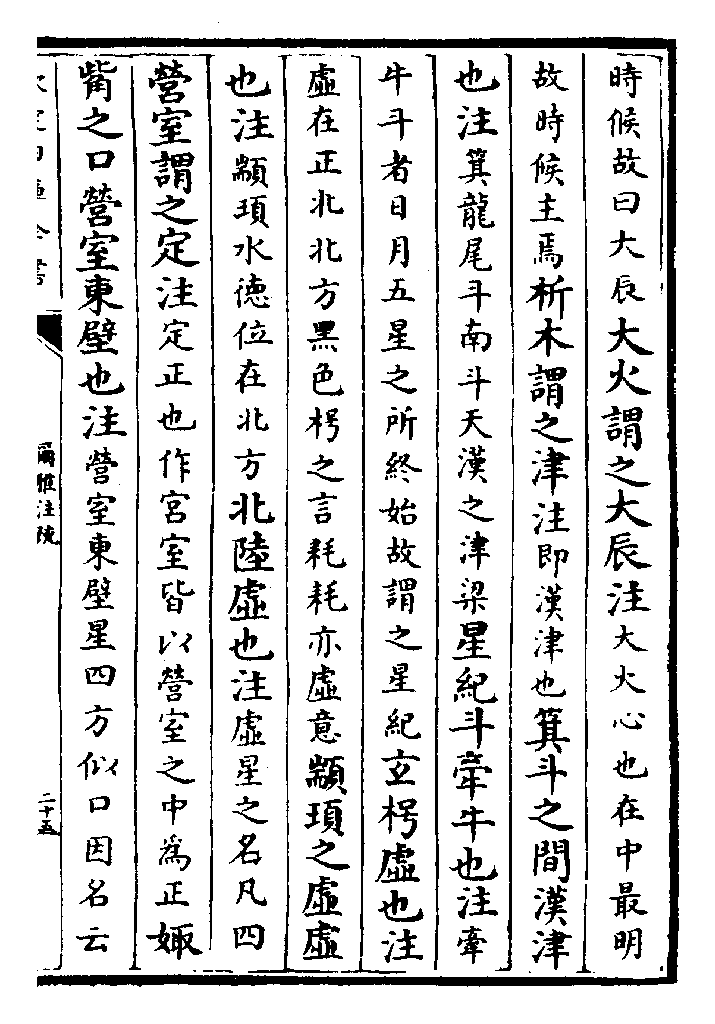 時候故曰大辰大火謂之大辰注大火心也在中最明
故時候主焉析木謂之津注即漢津也箕斗之間漢津
也注箕龍尾斗南斗天漢之津梁星紀斗牽牛也注牽
牛斗者日月五星之所終始故謂之星紀玄枵虛也注
虛在正北北方黑色枵之言耗耗亦虛意顓頊之虛虛
也注顓頊水德位在北方北陸虛也注虛星之名凡四
營室謂之定注定正也作宮室皆以營室之中為正娵
觜之口營室東壁也注營室東壁星四方似口因名云
爾雅注疏
二十五